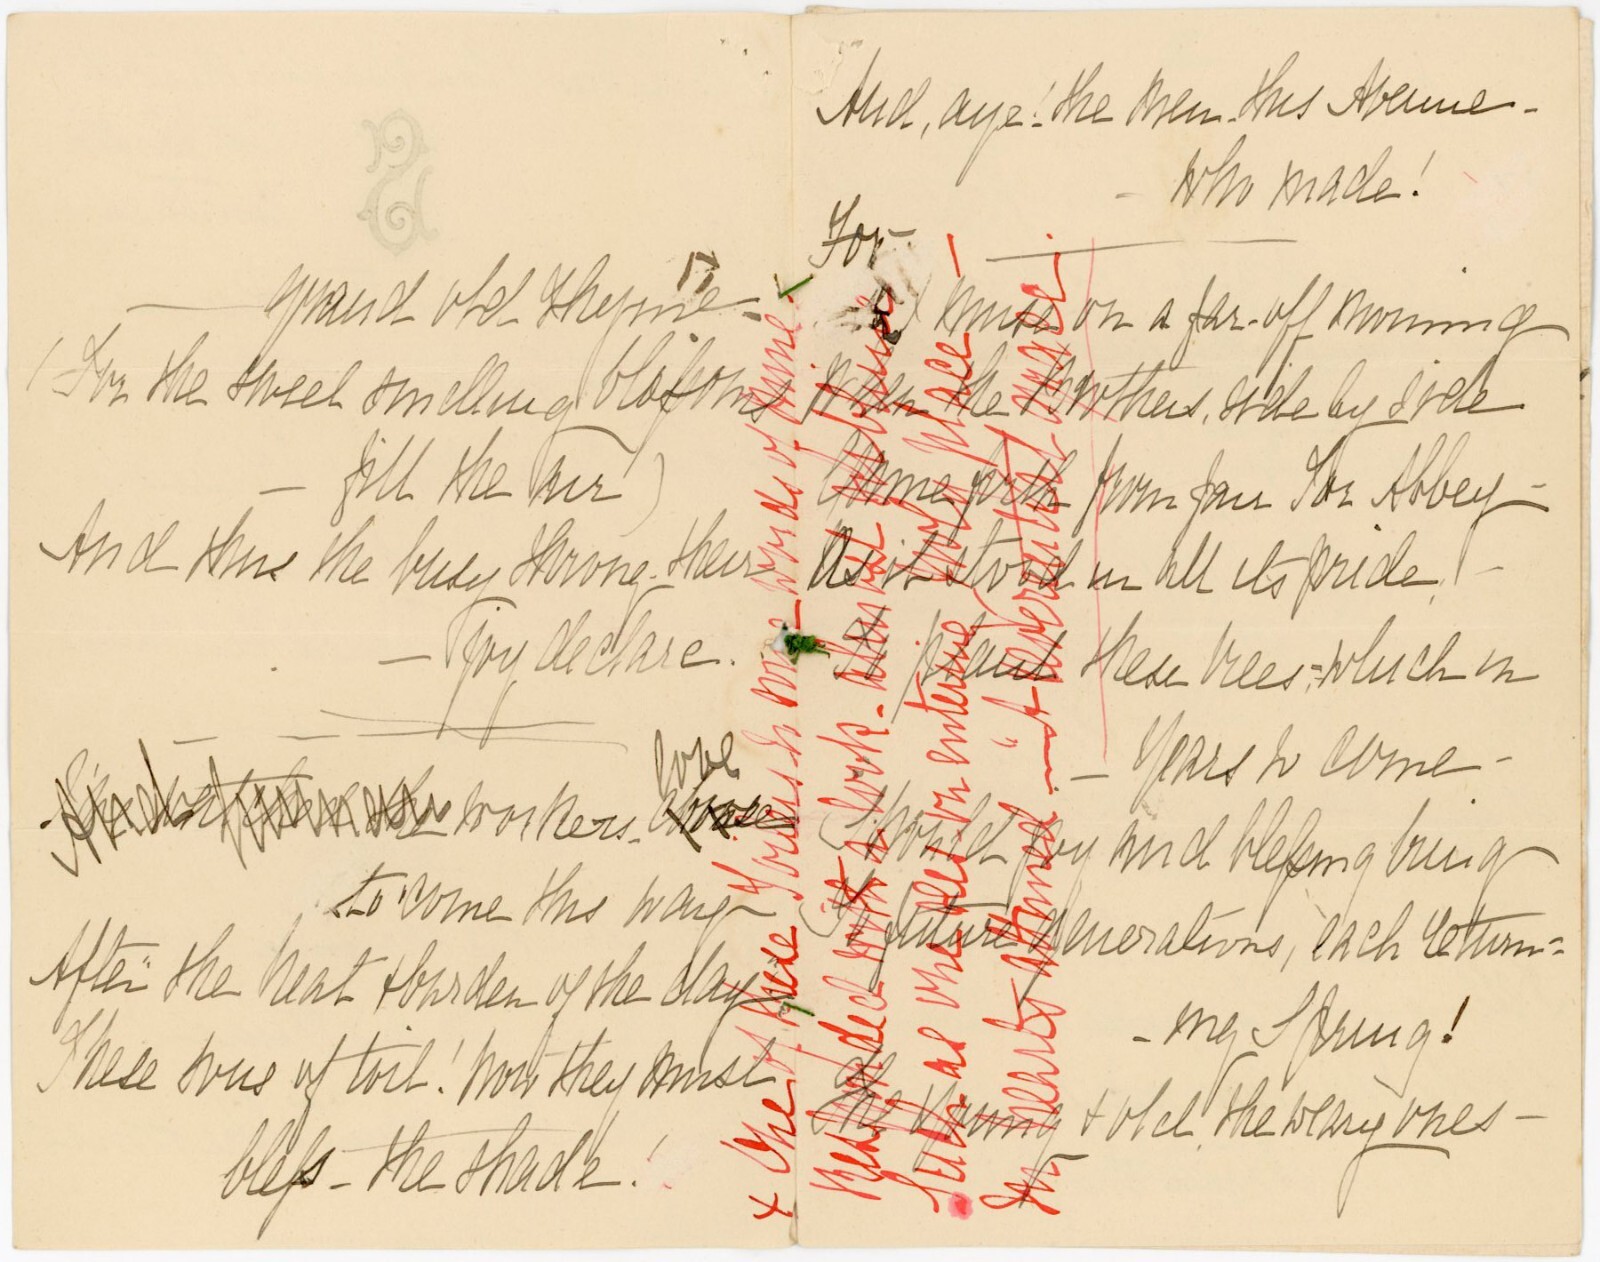 — grand old thyme —
(For the sweet smelling blossoms
— fill the air)
And thus the busy throng – their
— joy declare.
the workers love
to come this way
After the heat & burden of the day
These sons of toil! how they must
bless – the shade!
And, aye! the men – this Avenue –
– who made!
For
muse on a far-off morning
When the Brothers, side by side
Came forth from fair Tor Abbey –
As it stood in all its pride! –
To plant these trees, – which in
– Years to come –
Should joy and blessing bring
To future generations, each return=
– ing Spring!
The young & old, the weary ones –
+ One of these to me – words of mine –
Such – as when on entering holy place –
In hearts attuned – – "